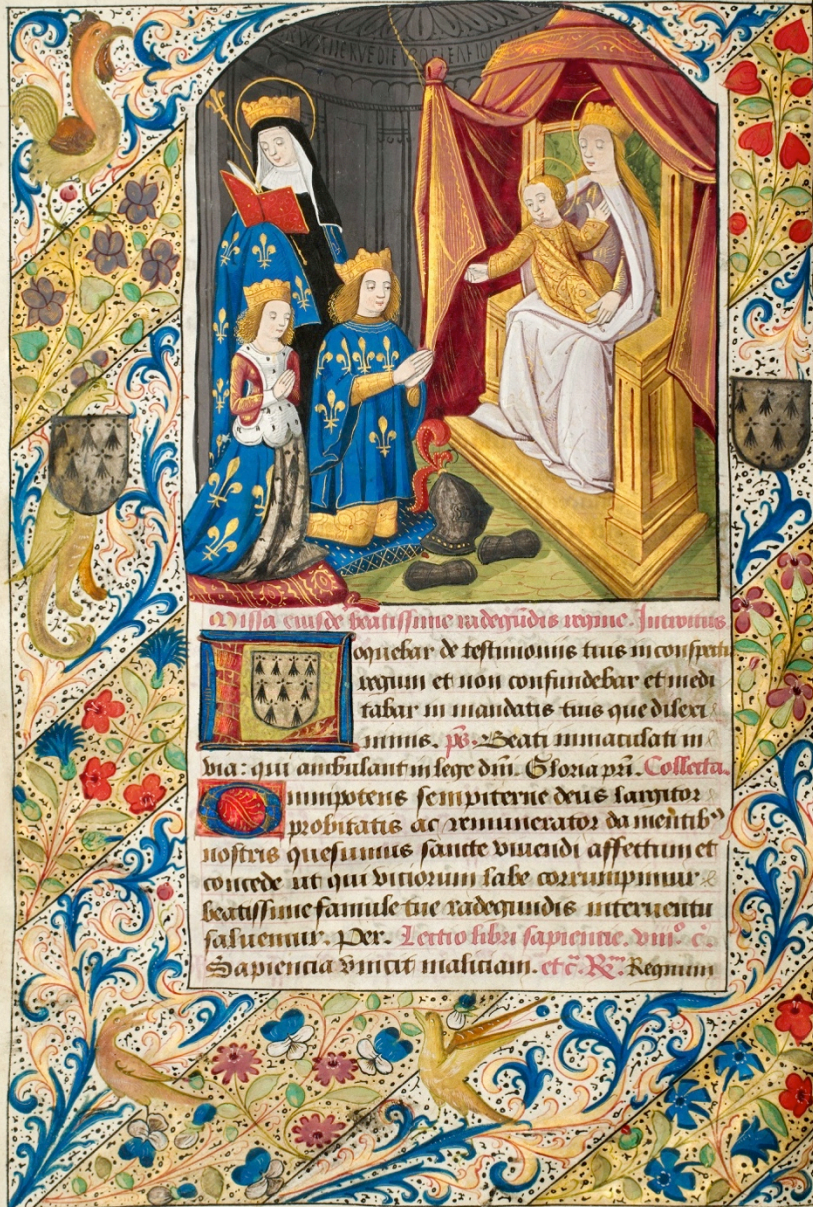 Missa eiusdē beatissime radegūdis regine. Introitus
Loquebar de testimoniis tuis in conspectu
regum et non confundebar et medi
tabar in mandatis tuis que dilexi
nimis. p̄s. Beati immaculati in
via: qui ambulant in lege dn̄i. Gloria pr̄i. Collecta.
Omnipotens sempiterne deus largitor
probitatis ac remunerator da mentibꝰ
nostris quesumus sancte viuendi affectum et
concede ut qui viciorum labe corrumpimur
beatissime famule tue radegundis interuentu
saluemur. Per. Lectio libri sapiencie. viiiº. c̄.
Sapiencia vincit maliciam. et c̄. R̄. Regnum